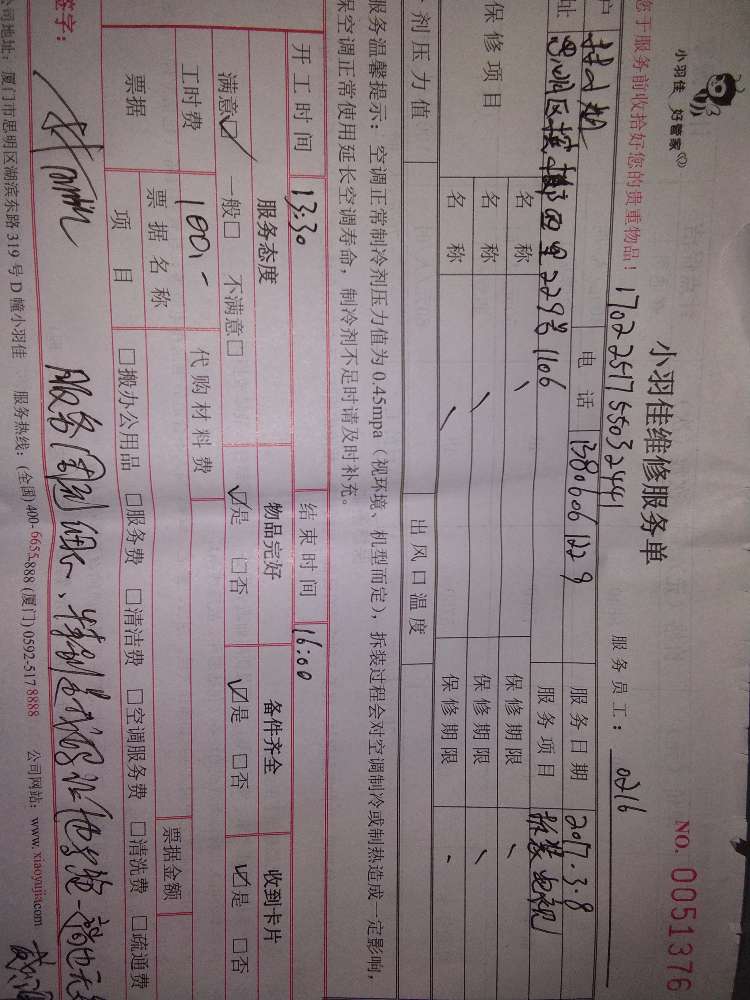 小羽佳 好管家
小羽佳维修服务单
NO. 0051376
您于服务前收拾好您的贵重物品！
17022517555032441
服务员工： 0216
户
电话 13806061229
服务日期 2017.3.8
址 思明区
西里229号1106
服务项目
保修项目
名称 保修期限
名称 保修期限
名称 保修期限
剂压力值 出风口温度
服务温馨提示：空调正常制冷剂压力值为0.45mpa（视环境、机型而定），拆装过程会对空调制冷或制热造成一定影响，
保空调正常使用延长空调寿命，制冷剂不足时请及时补充。
开工时间 13:30 结束时间 16:00
服务态度 物品完好 备件齐全 收到卡片
满意☑ 一般□ 不满意□ ☑是 □否 ☑是 □否 ☑是 □否
工时费 100.- 代购材料费
票据 票据名称 票据金额
项目 □搬办公用品 □服务费 □清洁费 □空调服务费 □清洗费 □疏通费
签字：
服务周到细心、特别是
公司地址：厦门市思明区湖滨东路319号D幢小羽佳 服务热线：(全国)400-6655-888 (厦门)0592-5178888 公司网站：www.xiaoyujia.com